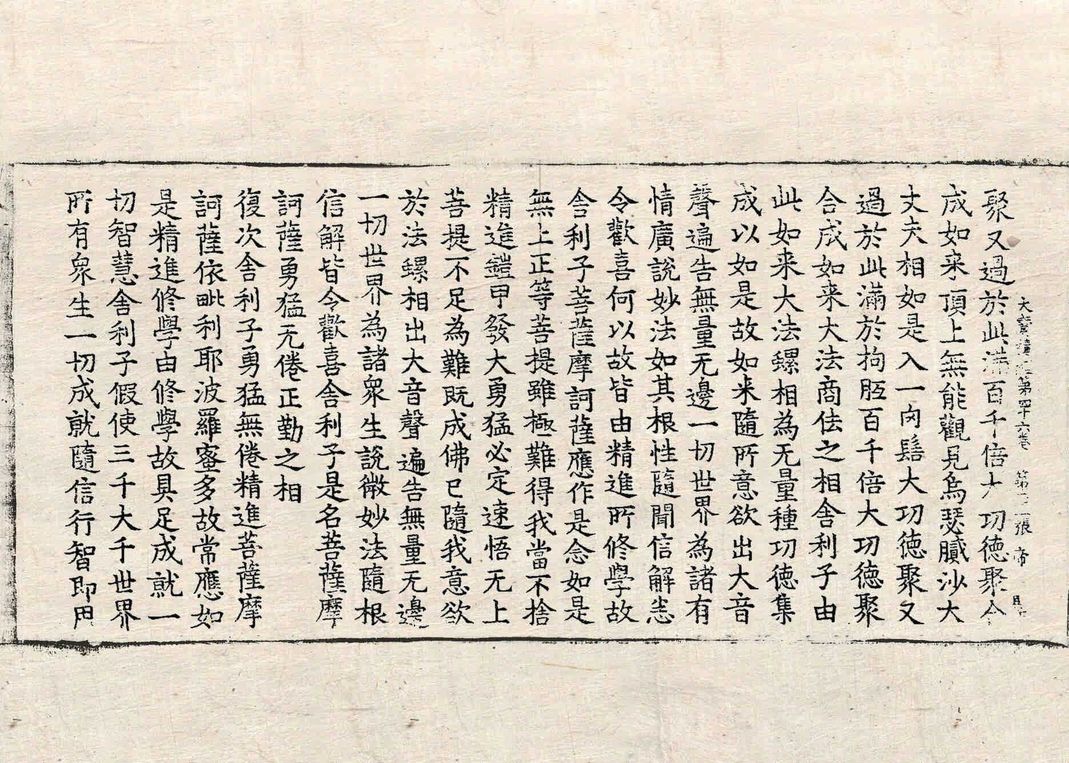 聚又過於此滿百千倍大功徳聚合
成如来頂上無能觀見烏瑟膩沙大
丈夫相如是入一向髻大功徳聚又
過於此滿於拘胝百千倍大功徳聚
合成如来大法商佉之相舍利子由
此如来大法螺相為无量種功徳集
成以如是故如来隨所意欲出大音
聲遍告無量无邊一切世界為諸有
情廣說妙法如其根性隨聞信解悉
令歡喜何以故皆由精進所修學故
舍利子菩薩摩訶薩應作是念如是
無上正等菩提雖極難得我當不捨
精進鎧甲發大勇猛必定速悟无上
菩提不足為難既成佛已隨我意欲
於法螺相出大音聲遍告無量无邊
一切世界為諸衆生說微妙法隨根
信解皆令歡喜舍利子是名菩薩摩
訶薩勇猛无倦正勤之相
復次舍利子勇猛無倦精進菩薩摩
訶薩依毗利耶波羅蜜多故常應如
是精進修學由修學故具足成就一
切智慧舍利子假使三千大千世界
所有衆生一切成就隨信行智即用
大寳積經第四十六卷 第二張 帝